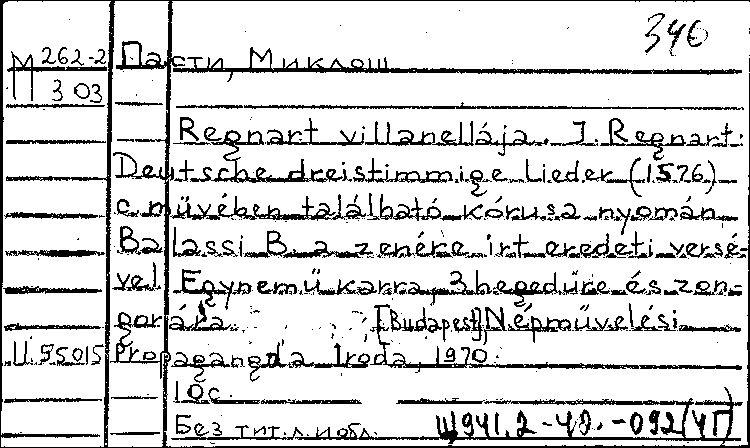 340
М 262-2 Пасти, Миклош
303
Regnart villanellája. J. Regnart:
Deutsche dreistimmige Lieder (1576)
c. müvében található kórusa nyomán
Balassi B. a zenére irt eredeti versé-
vel Egynemű karra, 3 hegedüre és zon-
gorára [Budapest], Népmüvelési
Ц.55015 Propaganda Iroda, 1970.
10 с.
Без тит. л. и обл. Щ941.2-49.-092(4Г)